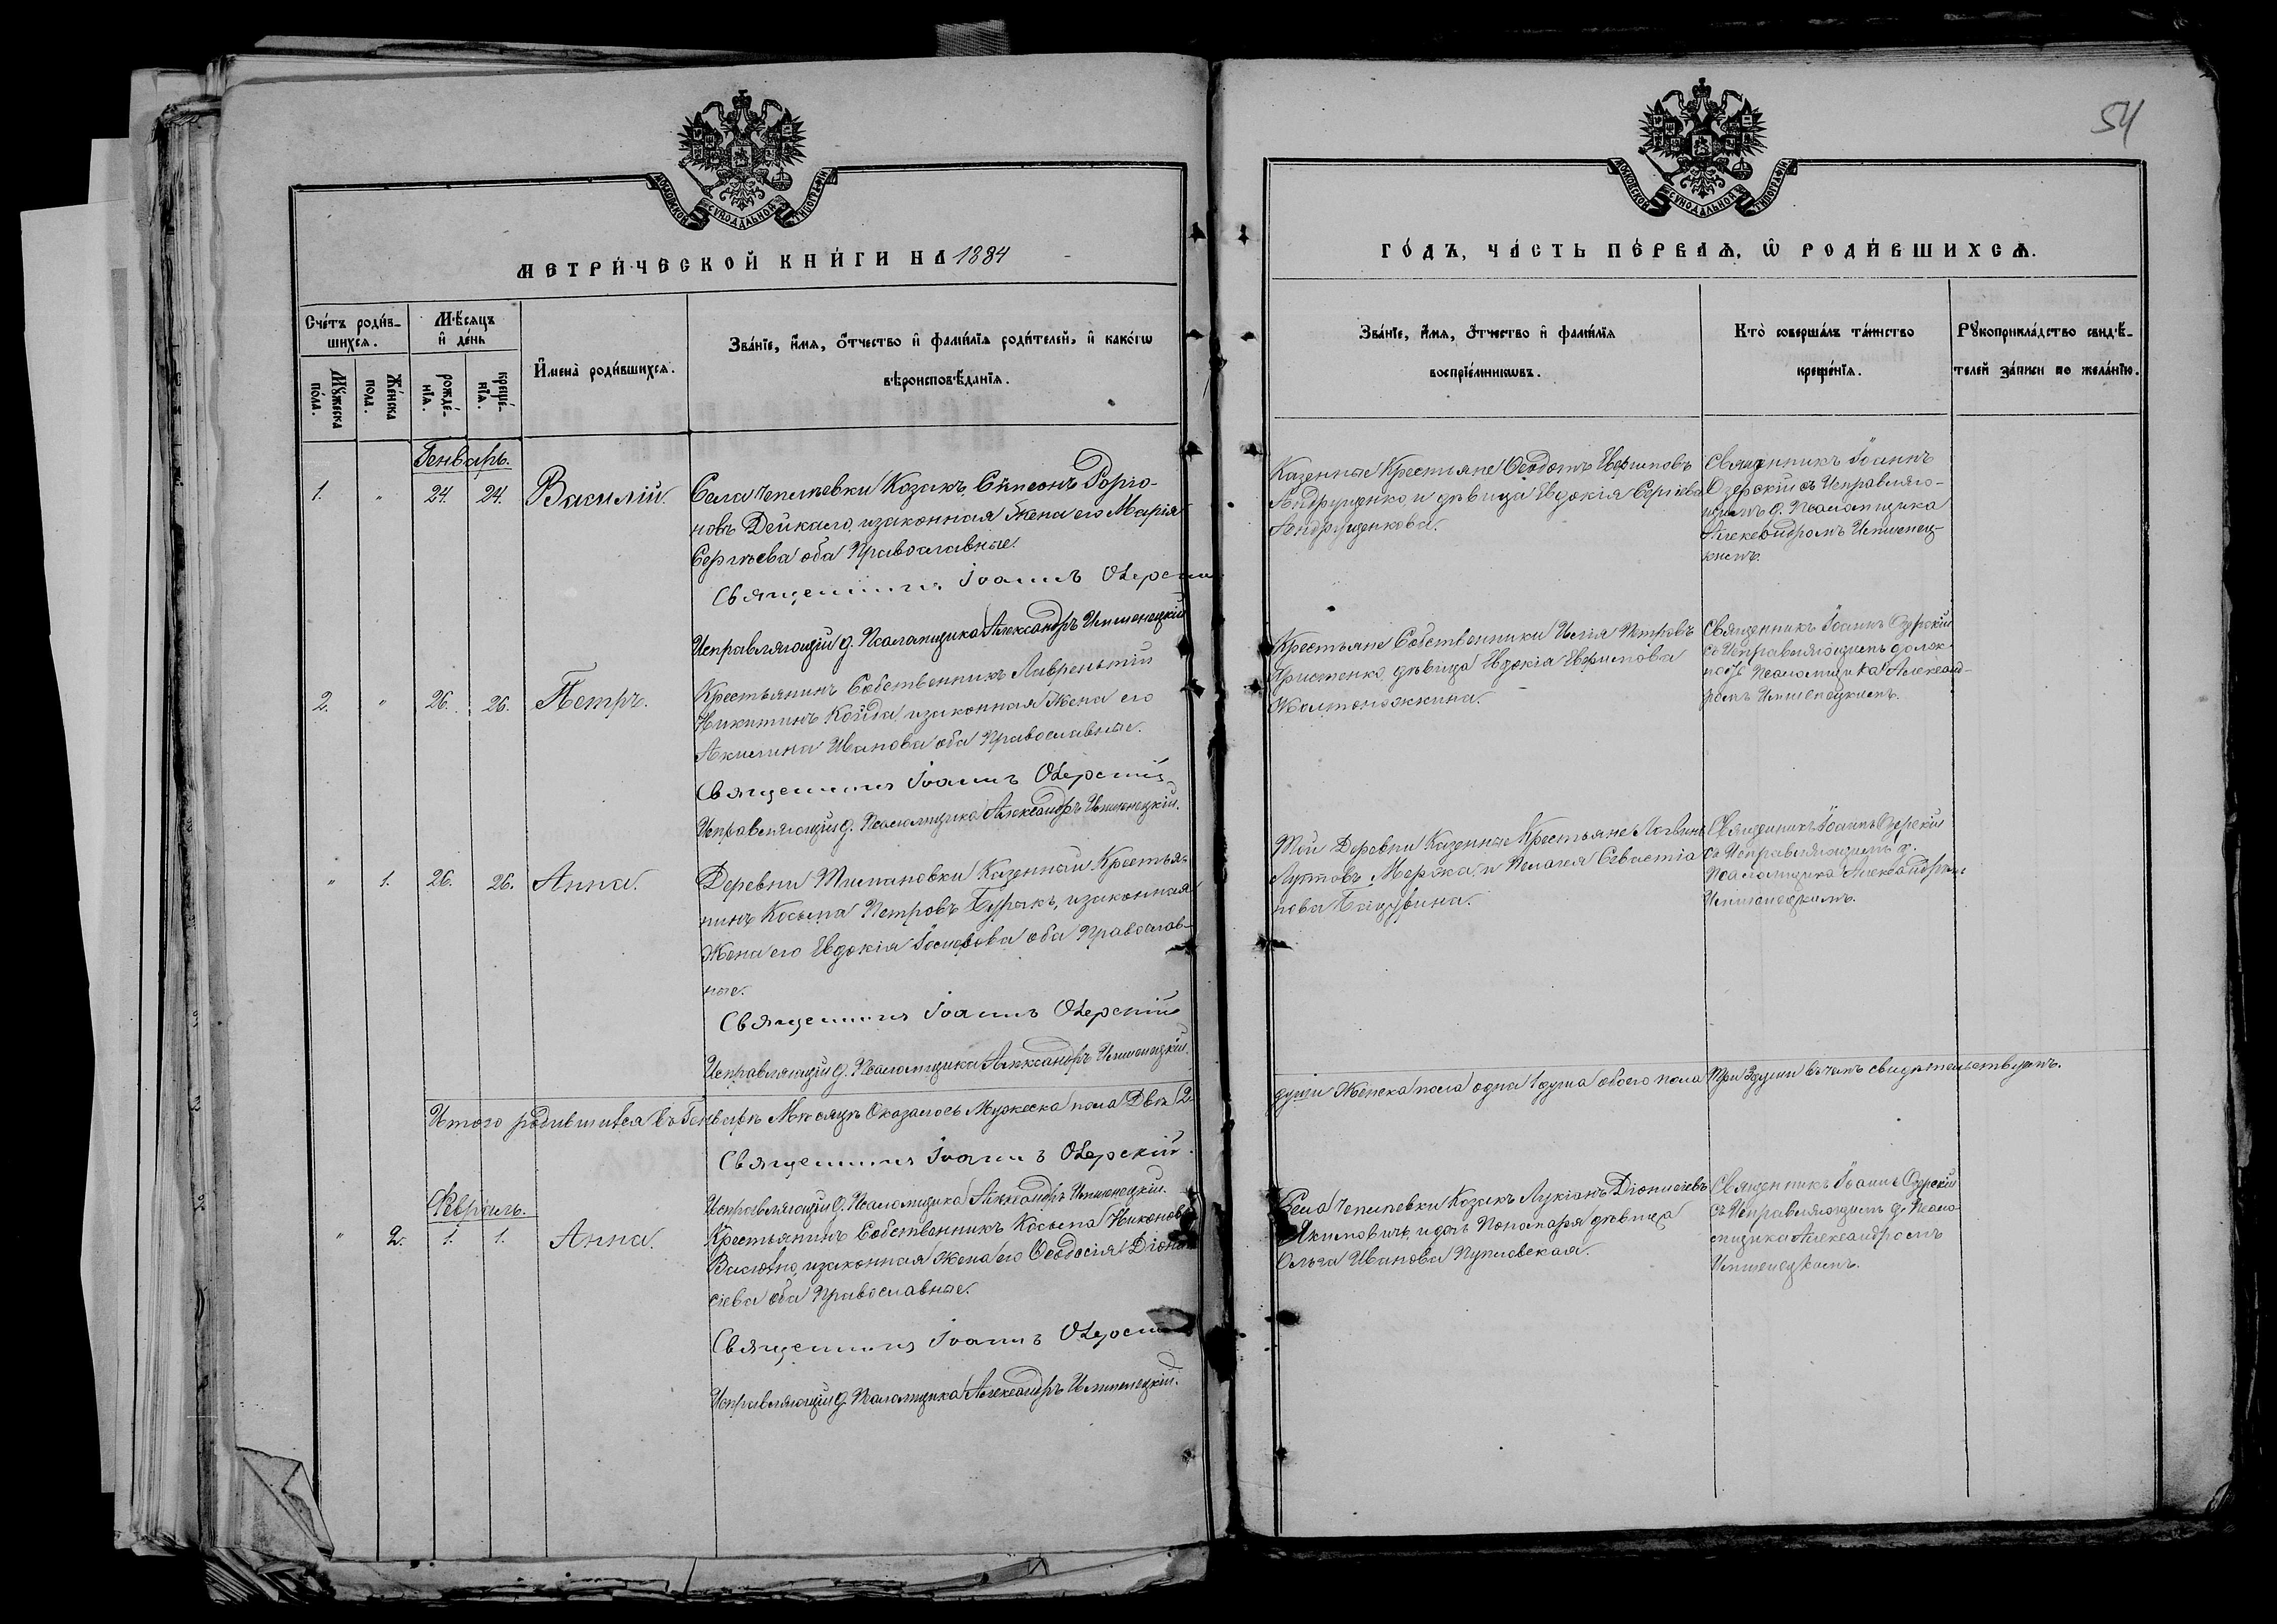 54
МОСКОВСКОЙ СѴНОДАЛЬНОЙ ТИПОГРАФІИ
МОСКОВСКОЙ СѴНОДАЛЬНОЙ ТИПОГРАФІИ
МЕТРИ́ЧЕСКОЙ КНИ́ГИ НА 1884
ГО́ДЪ, ЧА́СТЬ ПЕ́РВАѦ, Ѡ҆ РОДИ́ВШИХСѦ.
Сче́тъ роди́в-
шихсѧ.
Мꙋ́жеска по́ла.
Же́нска пола.
Мѣ́сѧцъ и҆ де́нь
рожде́-нїѧ.
креще́-нїѧ.
И҆мена̀ роди́вшихсѧ.
Зва́нїе, и҆́мѧ, ѻ҆́тчество и҆ фами́лїѧ роди́телей, и҆ како́гѡ
вѣроисповѣ́данїѧ.
Зва́нїе, и҆́мѧ, ѻ҆́тчество и҆ фами́лїѧ
воспрїе́мникѡвъ.
Кто̀ соверша́лъ та́инство
креще́нїѧ.
Рꙋкоприкла́дство свидѣ́-
телей за́писи по жела́нїю.
Генварь.
1. " 24. 24. Василій.
Села Чепилевки Козакъ, Сѵмеонъ Горго-
новъ Дейкало, изаконная Жена его Марія
Сергѣева оба Православные.
Священникъ Іоаннъ Озерскій
Исправляющій д. Псаломщика Александръ
Казенные Крестьяне Ѳеодотъ Евфимовъ
Андрущенко, и дѣвица Евдокія Сергіева
Андрущенкова.
Священникъ Іоаннъ
Озерскій съ Исправляю-
щимъ д. Псаломщика
Александромъ
2. " 26. 26. Петръ.
Крестьянинъ Собственникъ Лаврентій
Никитинъ Койда, изаконная Жена его
Акилина Иванова оба Православные.
Священникъ Іоаннъ Озерскій
Исправляющій д. Псаломщика Александръ
Крестьяне Собственники Илія Петровъ
дѣвица Евдокія Евфимова
Жолтоножкина.
Священникъ Іоаннъ Озерскій
съ Исправляющимъ долж-
ность Псаломщика Александ-
ромъ
" 1. 26. 26. Анна.
Деревни Казенный Крестья-
нинъ Косьма Петровъ Бурякъ, изаконная
Жена его Евдокія Іосифова оба Православ-
ные.
Священникъ Іоаннъ Озерскій
Исправляющій д. Псаломщика Александръ
Той Деревни Казенные Крестьяне Логвинъ
и Пелагея Севастіа-
нова
Священникъ Іоаннъ Озерскій
съ Исправляющимъ д.
Псаломщика Александромъ
Итого родившихся въ Генварѣ Мѣсяцѣ Оказалось Мужеска пола Двѣ 2
души Женска пола одна 1 душа обоего пола Три 3 души въ чемъ свидѣтельствуемъ.
Священникъ Іоаннъ Озерскій.
Исправляющій д. Псаломщика Александръ
Февраль.
" 2. 1. 1. Анна.
Крестьянинъ Собственникъ Косьма Никоновъ
изаконная Жена его Ѳеодосія Діони-
сіева оба Православные.
Священникъ Іоаннъ Озерскій
Исправляющій д. Псаломщика Александръ
Села Чепилевки Козакъ Лукіанъ Діонисіевъ
Якимовичъ, и дочь Пономаря дѣвица
Ольга Иванова
Священникъ Іоаннъ Озерскій
съ Исправляющимъ д. Псало-
мщика Александромъ